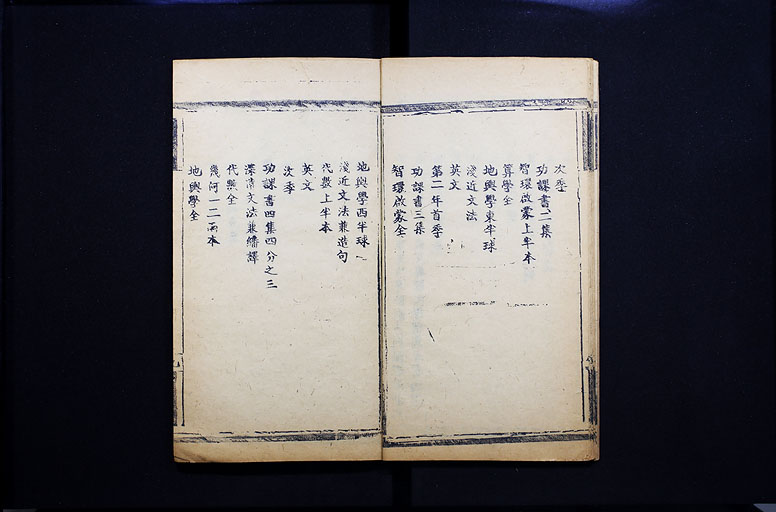 次季
功課書二集
智環啟蒙上半本
算學全
地輿學東半球
淺近文法
英文
第二年首季
功課書三集
智環啟蒙全
地輿學西半球
淺近文法兼造句
代數上半本
英文
次季
功課書四集四分之三
深清文法兼繙譯
代數全
幾何一二兩本
地輿學全